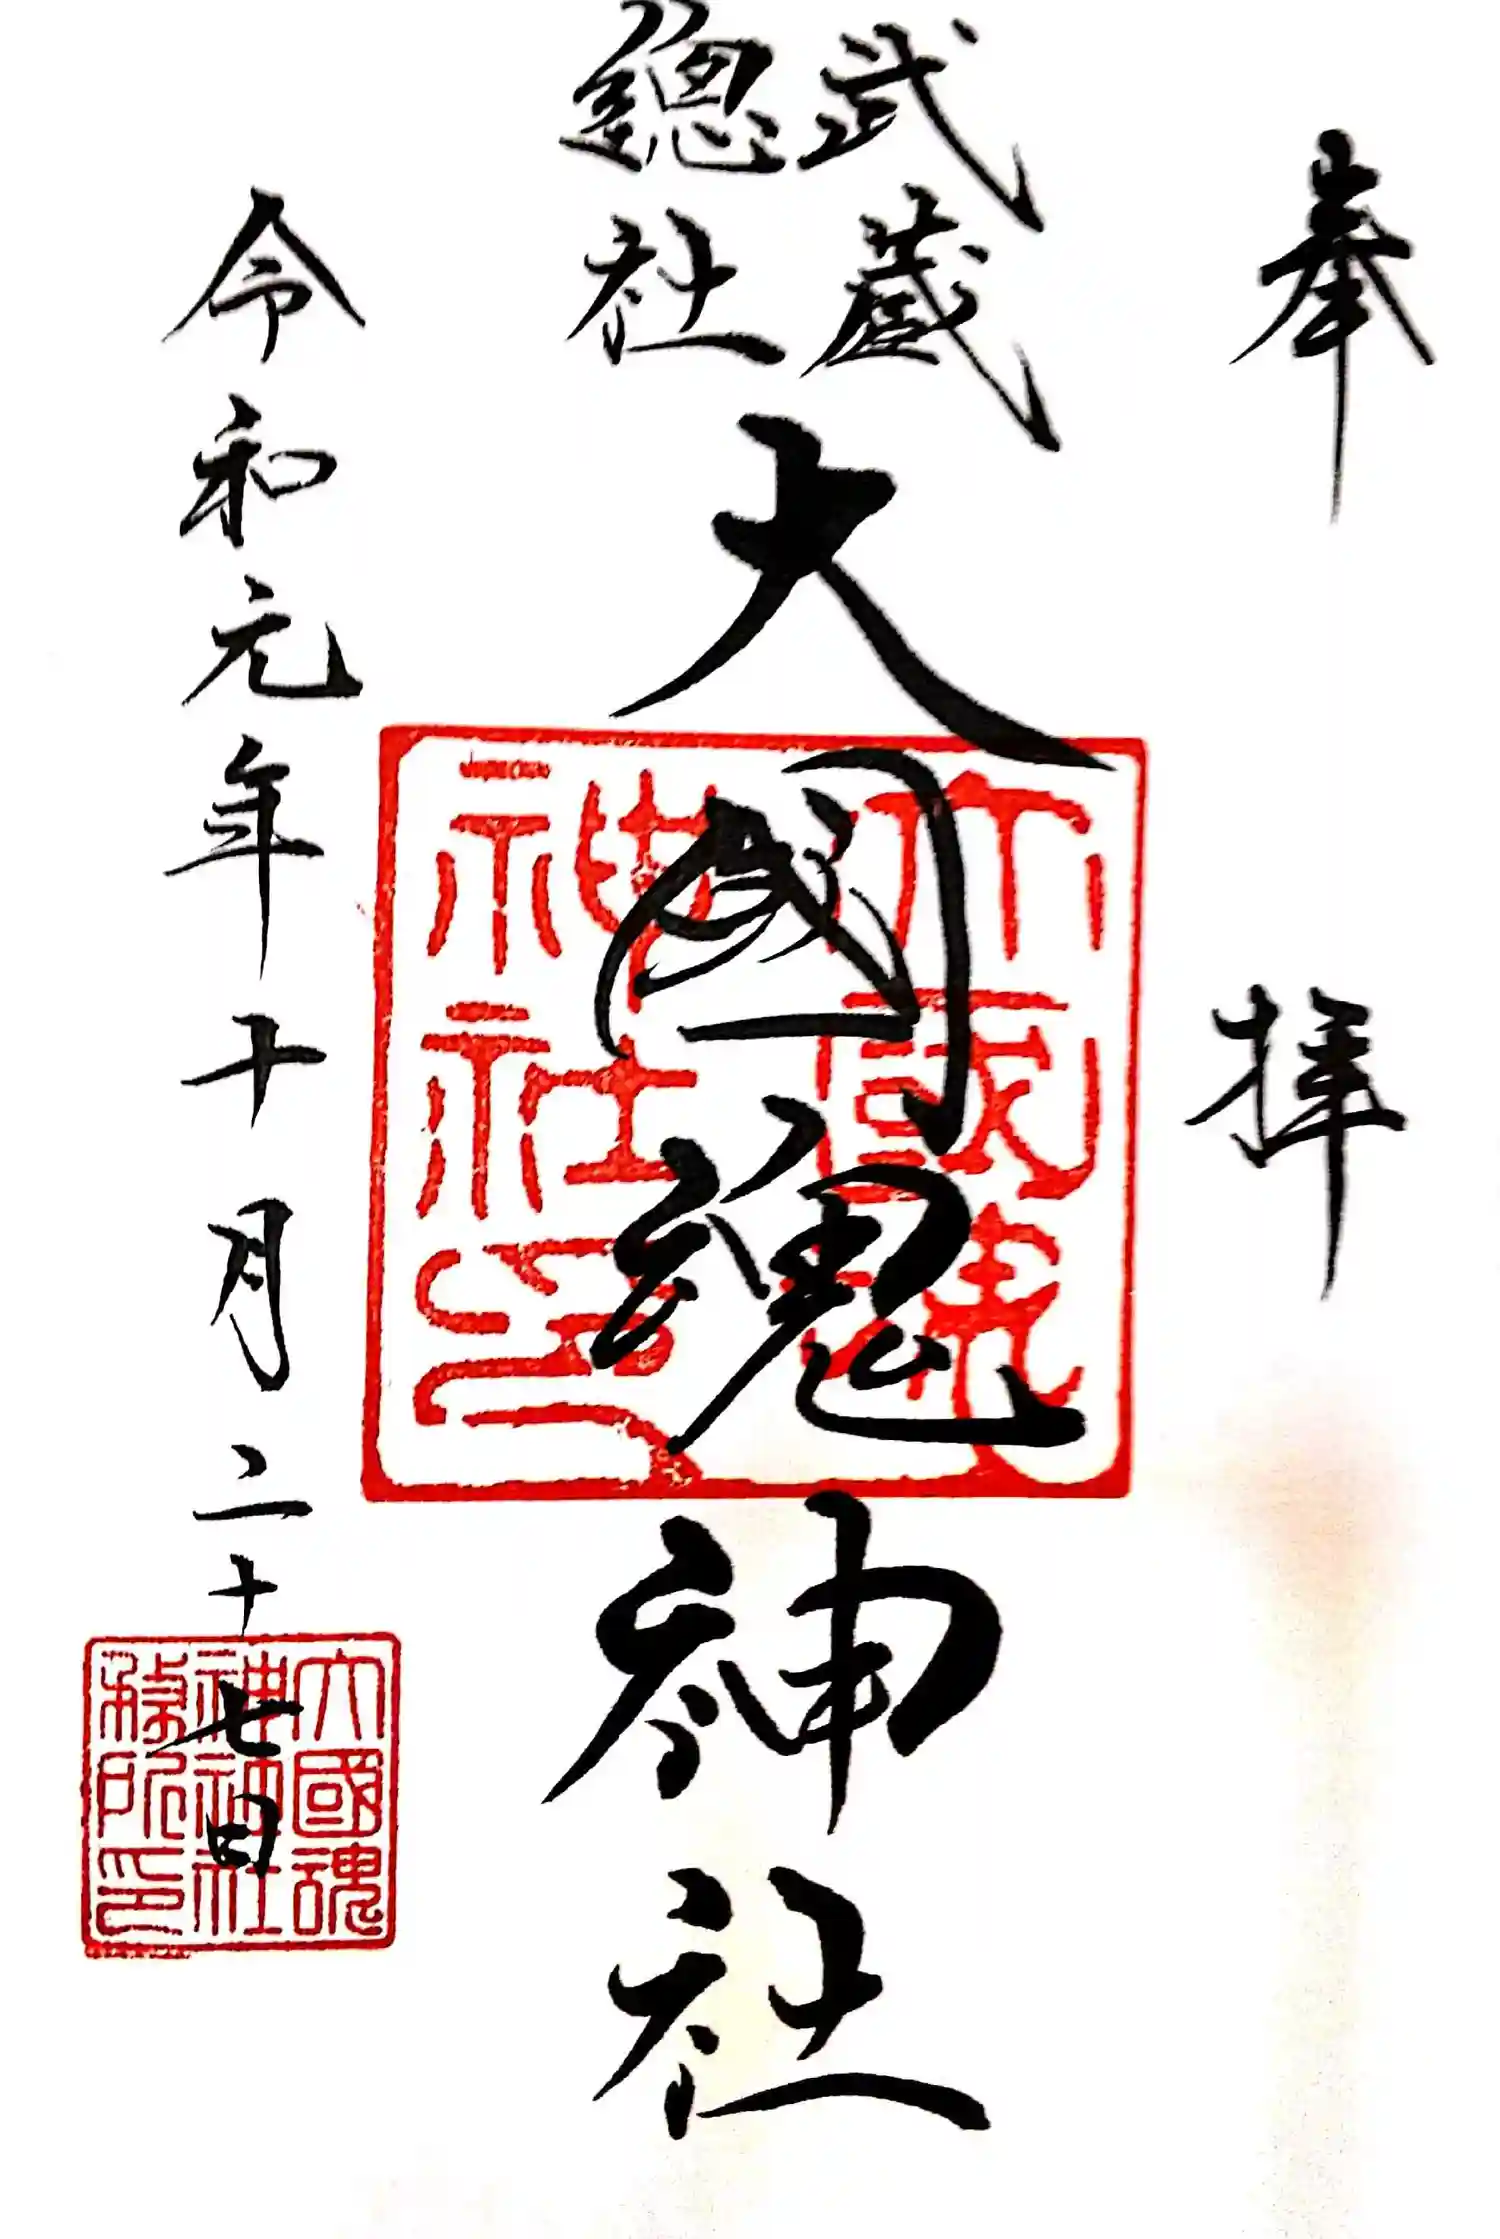 奉拝
武蔵
總社
大國魂神社
令和元年十月二十七日
大國魂
神社印
大國魂
神社社
務所印